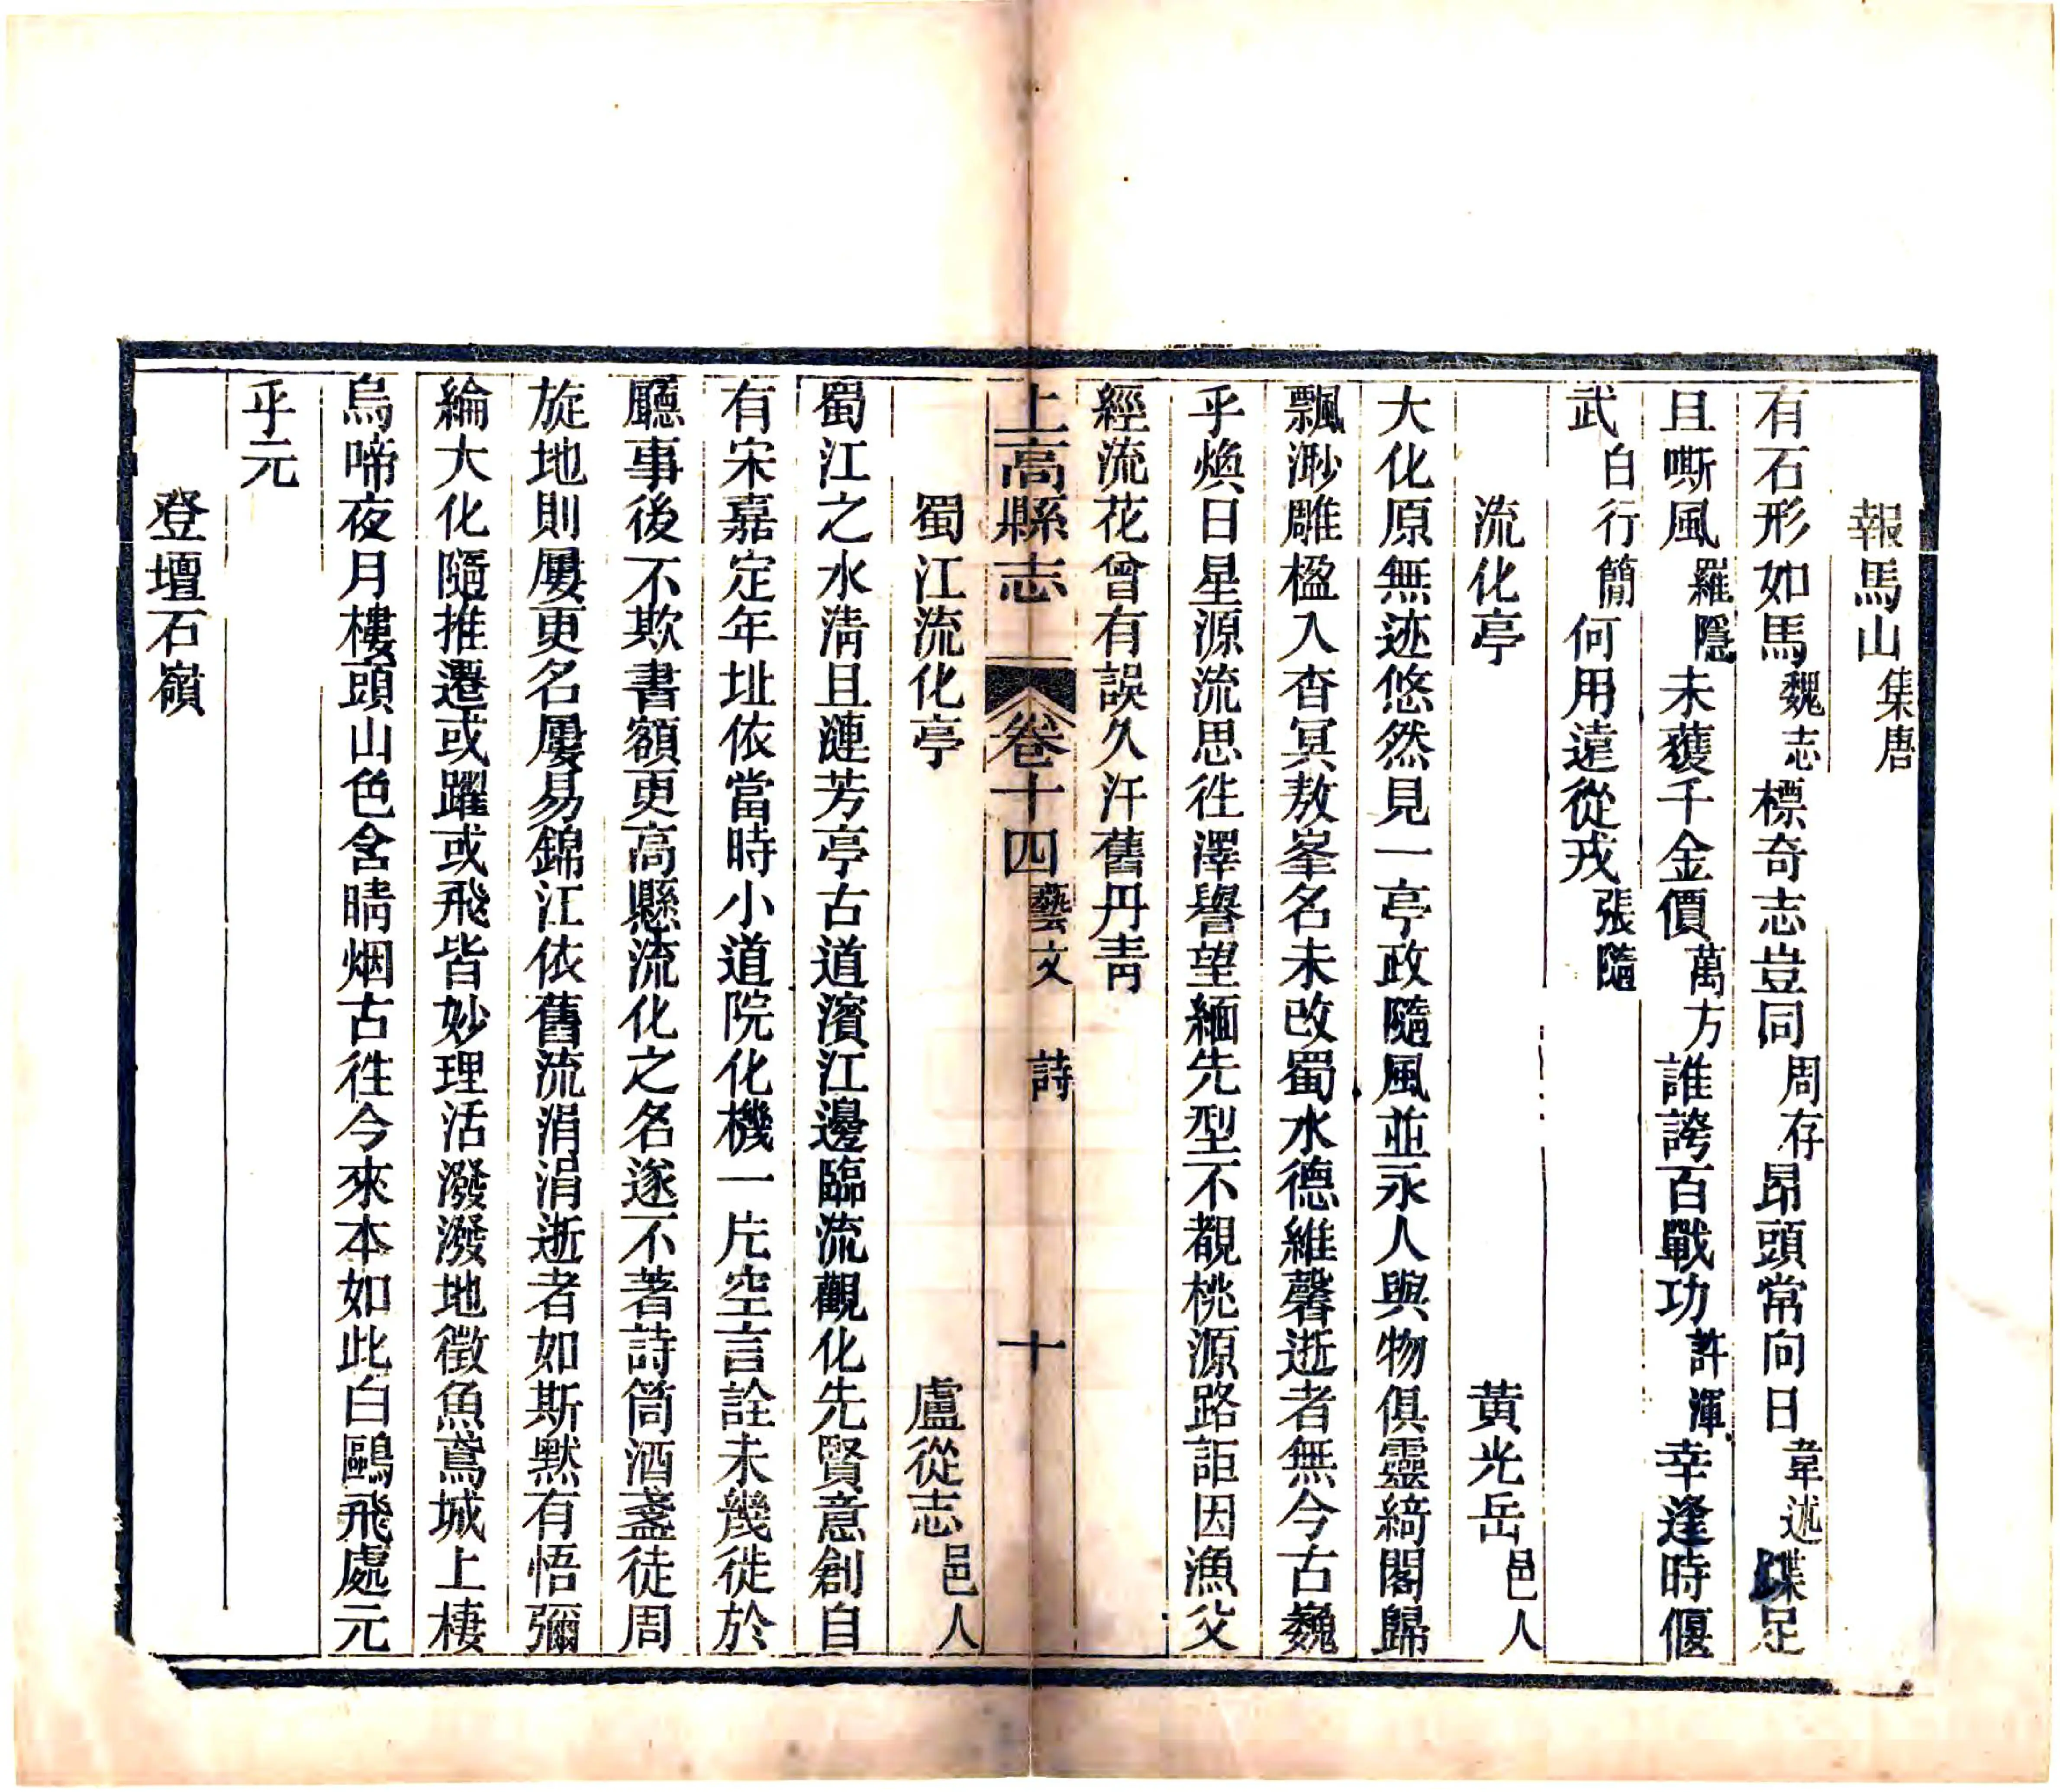 報馬山集唐
有石形如馬魏志標奇志豈同周存昂頭常向日韋述蹀足
且嘶風羅隱未獲千金價萬方誰誇百戰功許渾幸逢時偃
武白行簡何用遠從戎張隨
流化亭黃光岳邑人
大化原無迹悠然見一亭政隨風並永人與物俱靈綺閣歸
飄渺雕楹入杳冥敖峯名未改蜀水德維馨逝者無今古巍
乎煥日星源流思往澤譽望緬先型不覩桃源路詎因漁父
經流花曾有誤久汗舊丹青
上高縣志卷十四藝文詩十
蜀江流化亭盧從志邑人
蜀江之水淸且漣芳亭古道濱江邊臨流觀化先賢意創自
有宋嘉定年址依當時小道院化機一片空言詮未幾徙於
廳事後不欺書額更高懸流化之名遂不著詩筒酒盞徒周
旋地則屢更名屢易錦江依舊流涓涓逝者如斯默有悟彌
綸大化隨推遷或躍或飛皆妙理活潑潑地徵魚鳶城上棲
烏啼夜月樓頭山色含晴烟古往今來本如此白鷗飛處元
乎元
登壇石嶺